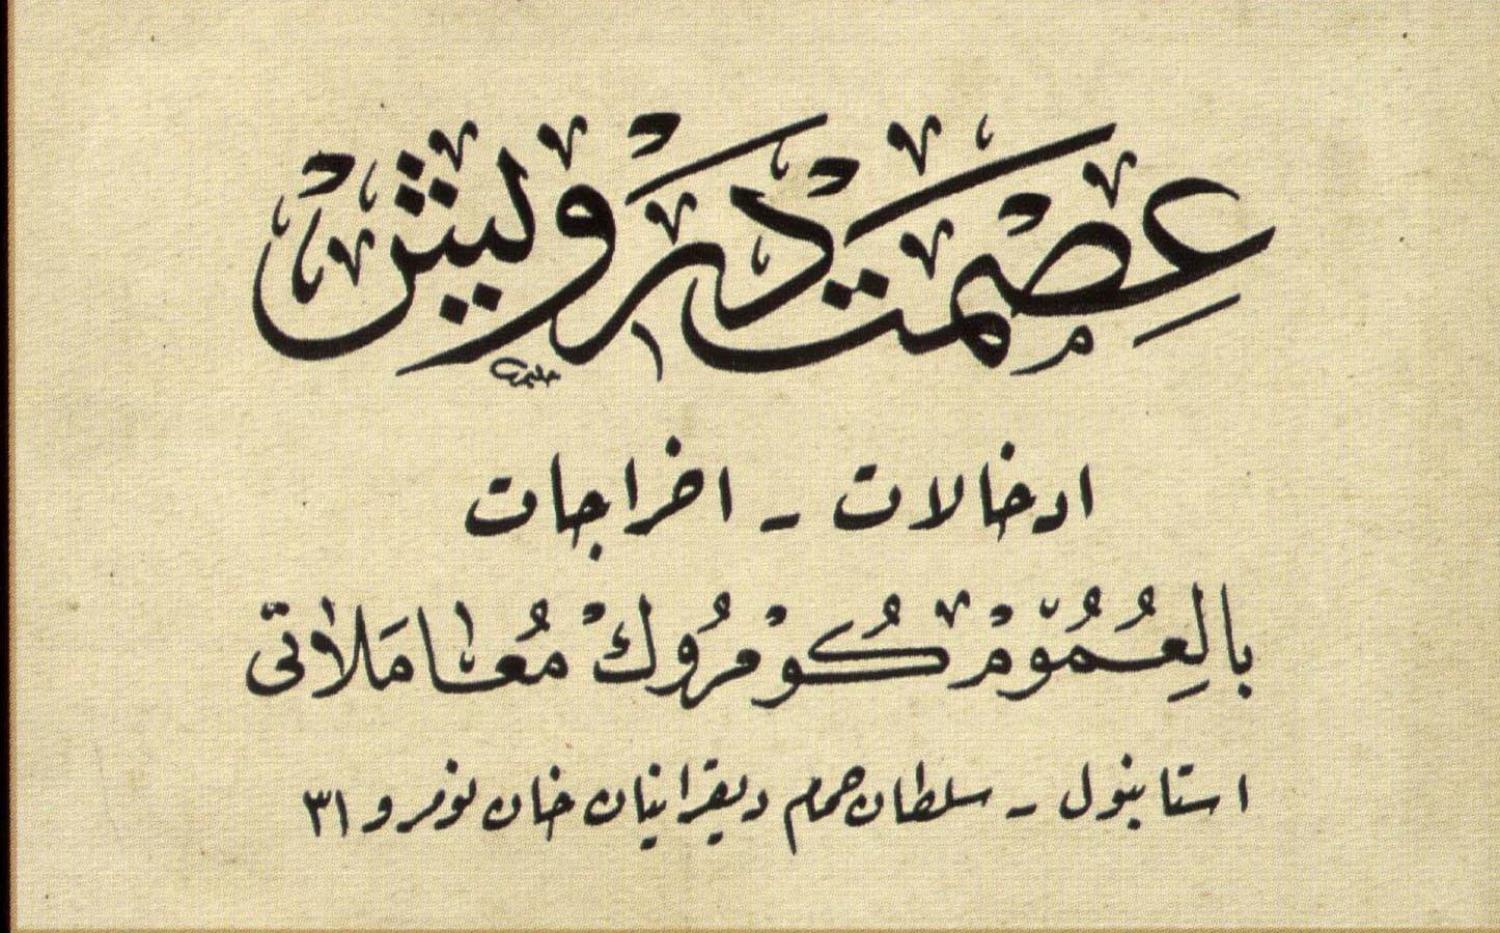 عصمت درويش
ادخالات - اخراجات
بِالعُمُوّمْ كُوْمرُوكْ مُعَامَلاتی
استانبول - سلطان حمام ديقرانيان خان نومرو ٣١